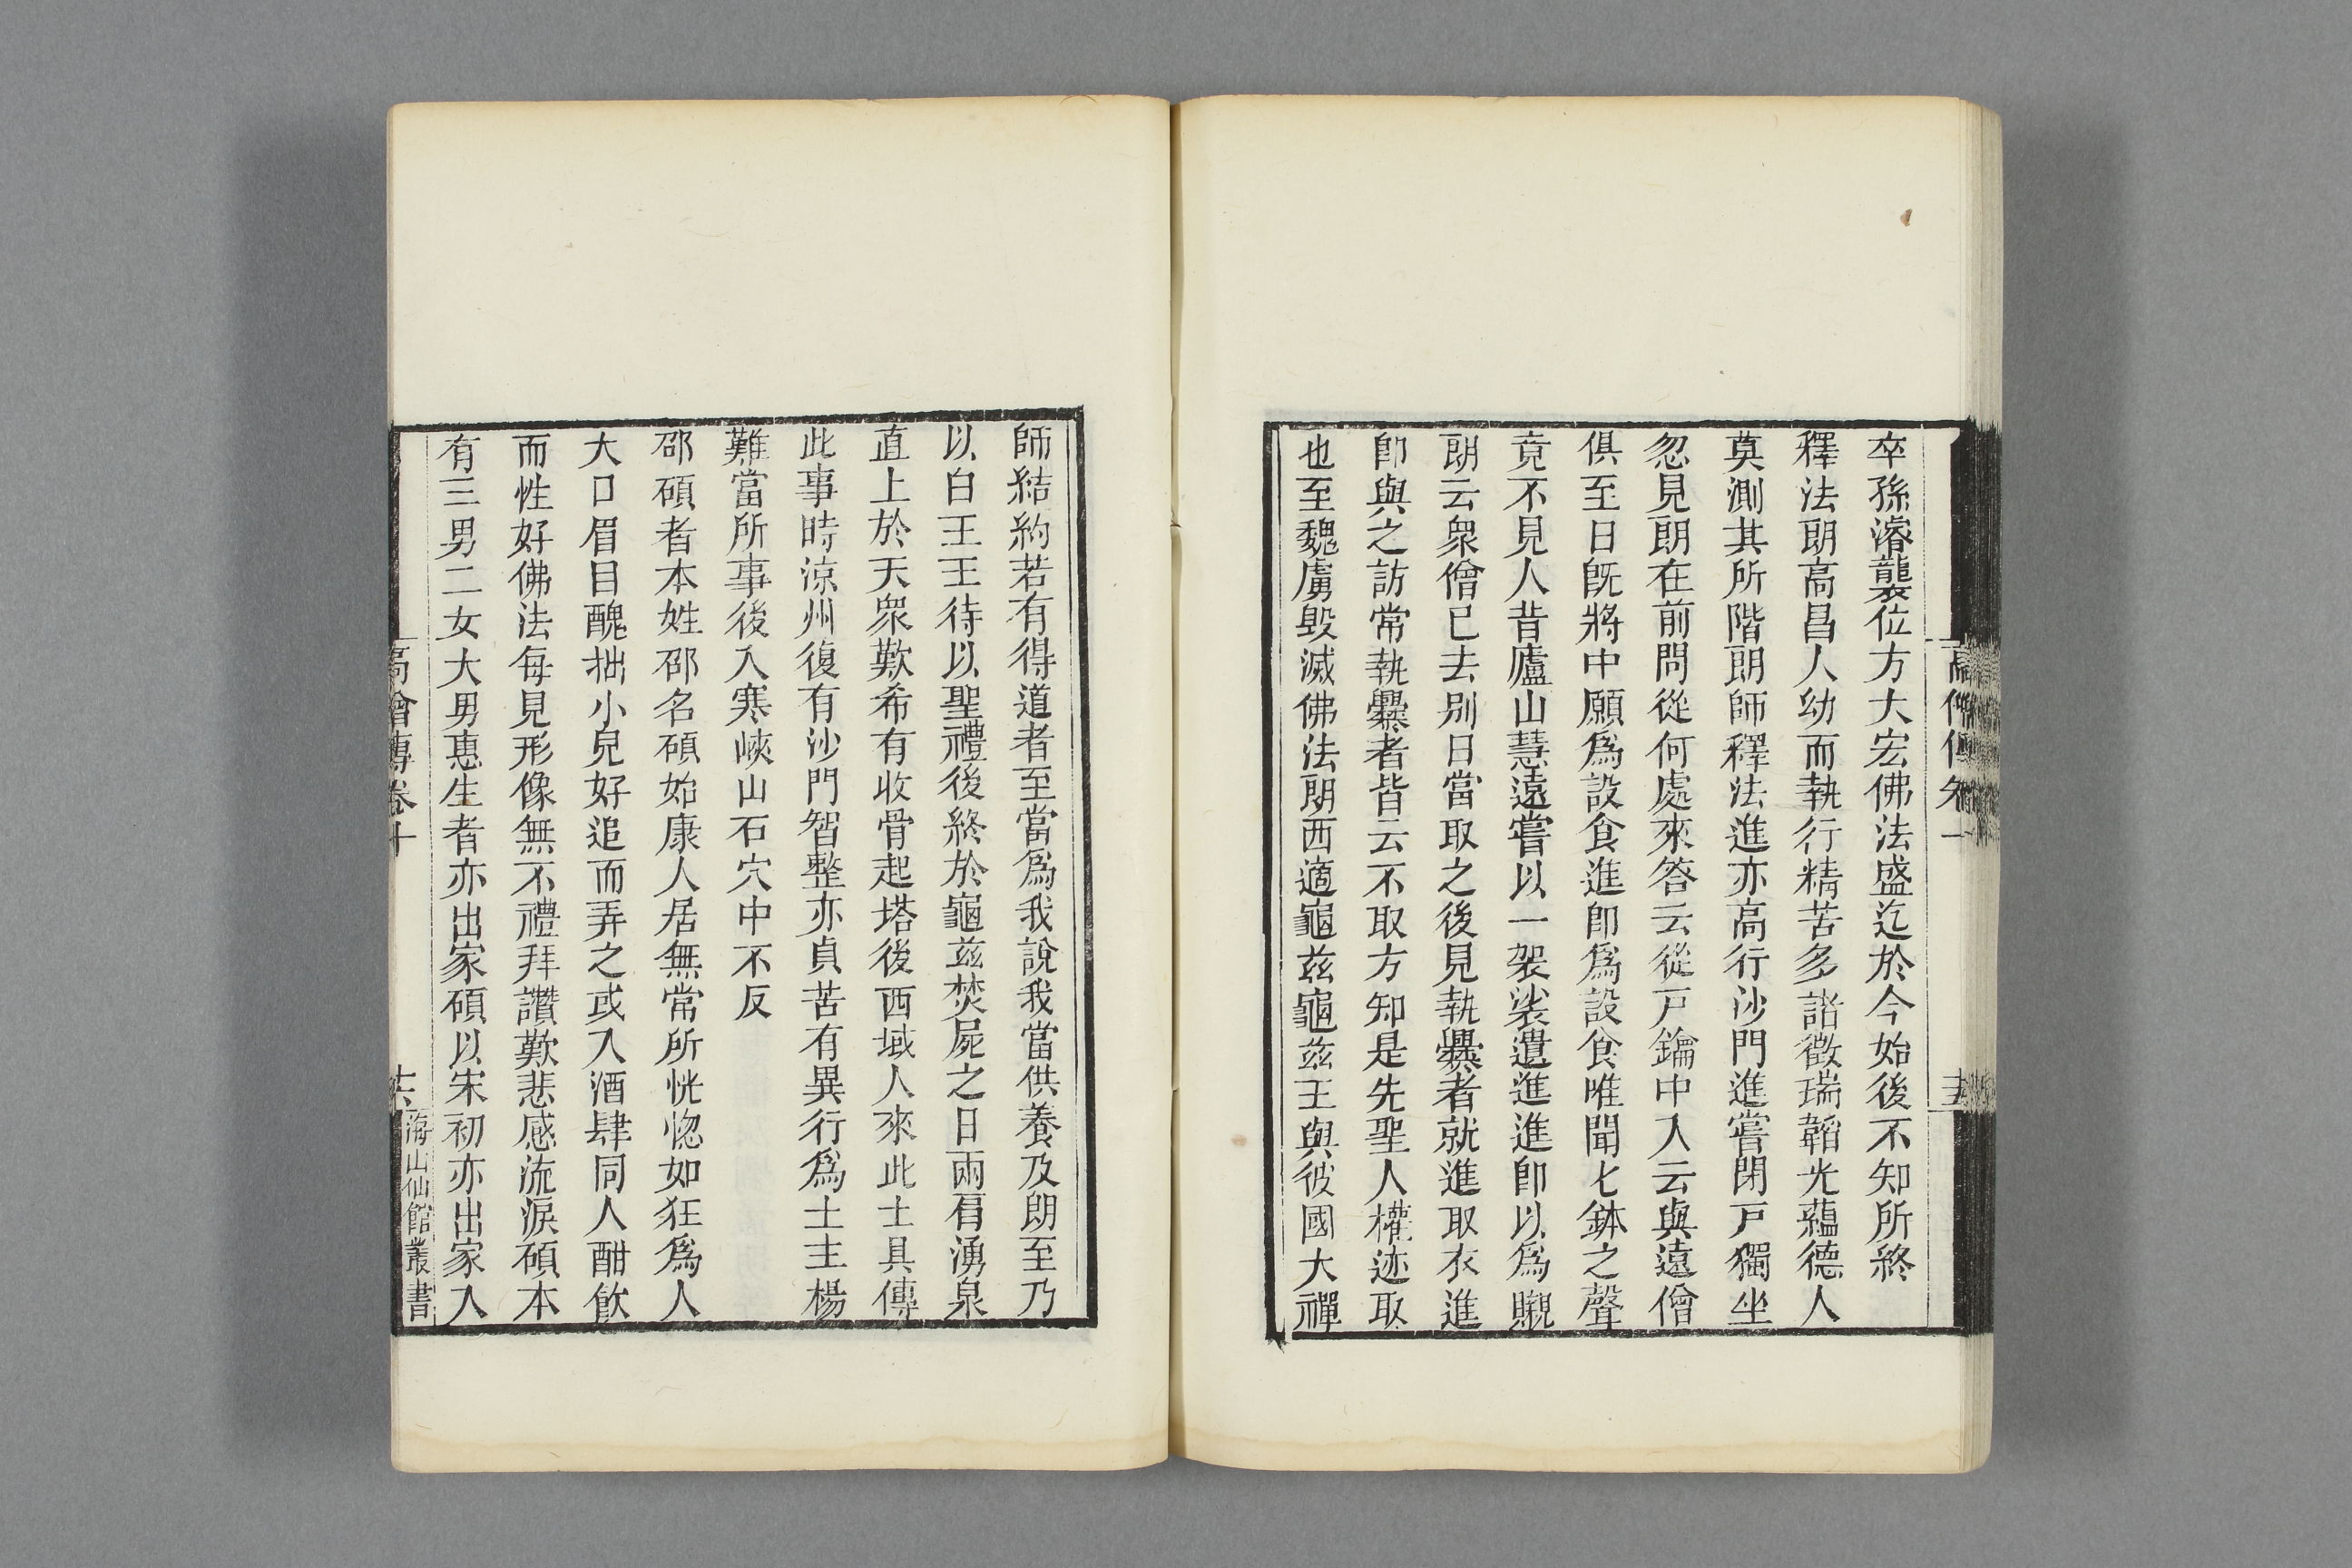 卒孫濬襲位方大宏佛法盛迄於今始後不知所終
釋法朗高昌人幼而執行精苦多諸徵瑞韜光蘊德人
莫測其所階朗師釋法進亦高行沙門進嘗閉戸獨坐
忽見朗在前問從何處來答云從戸鑰中入云與遠僧
俱至日旣將中願爲設食進卽爲設食唯聞匕鉢之聲
竟不見人昔廬山慧遠嘗以一袈裟遺進進卽以爲嚫
朗云衆僧已去别日當取之後見執爨者就進取衣進
卽與之訪常執爨者皆云不取方知是先聖人權迹取
也至魏虜毀滅佛法朗西適龜兹龜兹王與彼國大禪
師結約若有得道者至當爲我說我當供養及朗至乃
以白王王待以聖禮後終於龜兹焚屍之日兩眉湧泉
直上於天衆歎希有收骨起塔後西域人來此土具傳
此事時涼州復有沙門智整亦貞苦有異行爲土主楊
難當所事後入寒峽山石穴中不反
邵碩者本姓邵名碩始康人居無常所恍惚如狂爲人
大口眉目醜拙小兒好追而弄之或入酒肆同人酣飲
而性好佛法每見形像無不禮拜讚歎悲感流淚碩本
有三男二女大男惠生者亦出家碩以宋初亦出家入
高僧傳卷十
海山仙館叢書